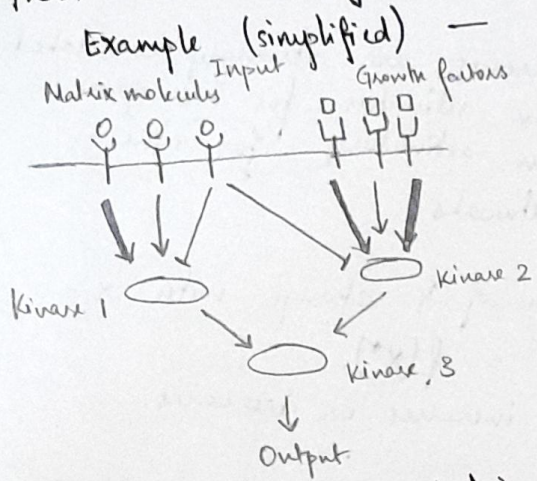 Example (simplified) —
Input
Matrix molecules
Growth factors
Kinase 1
Kinase 2
Kinase 3
Output